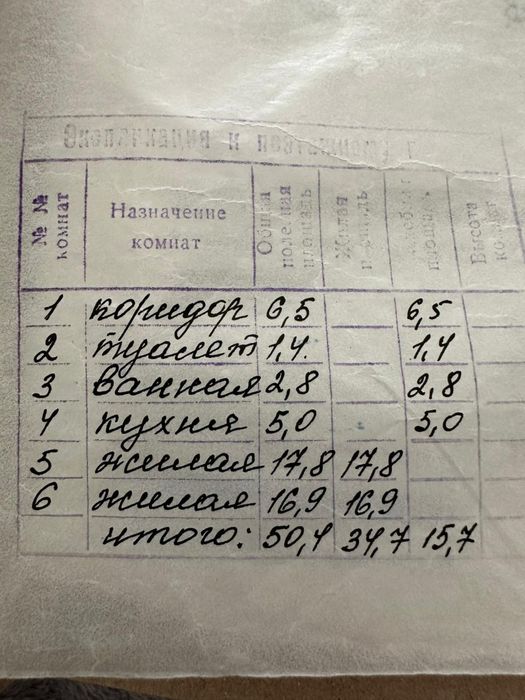 Экспликация и
№ № комнат Назначение комнат Общая полезная площадь Жилая площадь площадь Высота
1 коридор 6,5 6,5
2 туалет 1,4 1,4
3 ванная 2,8 2,8
4 кухня 5,0 5,0
5 жилая 17,8 17,8
6 жилая 16,9 16,9
итого: 50,4 34,7 15,7